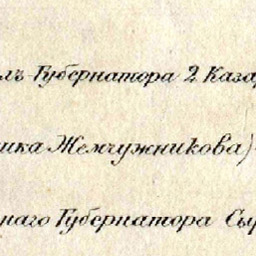 лъ-Губернатора 2 Каза
ика Жемчужникова)
наго Губернатора Сы